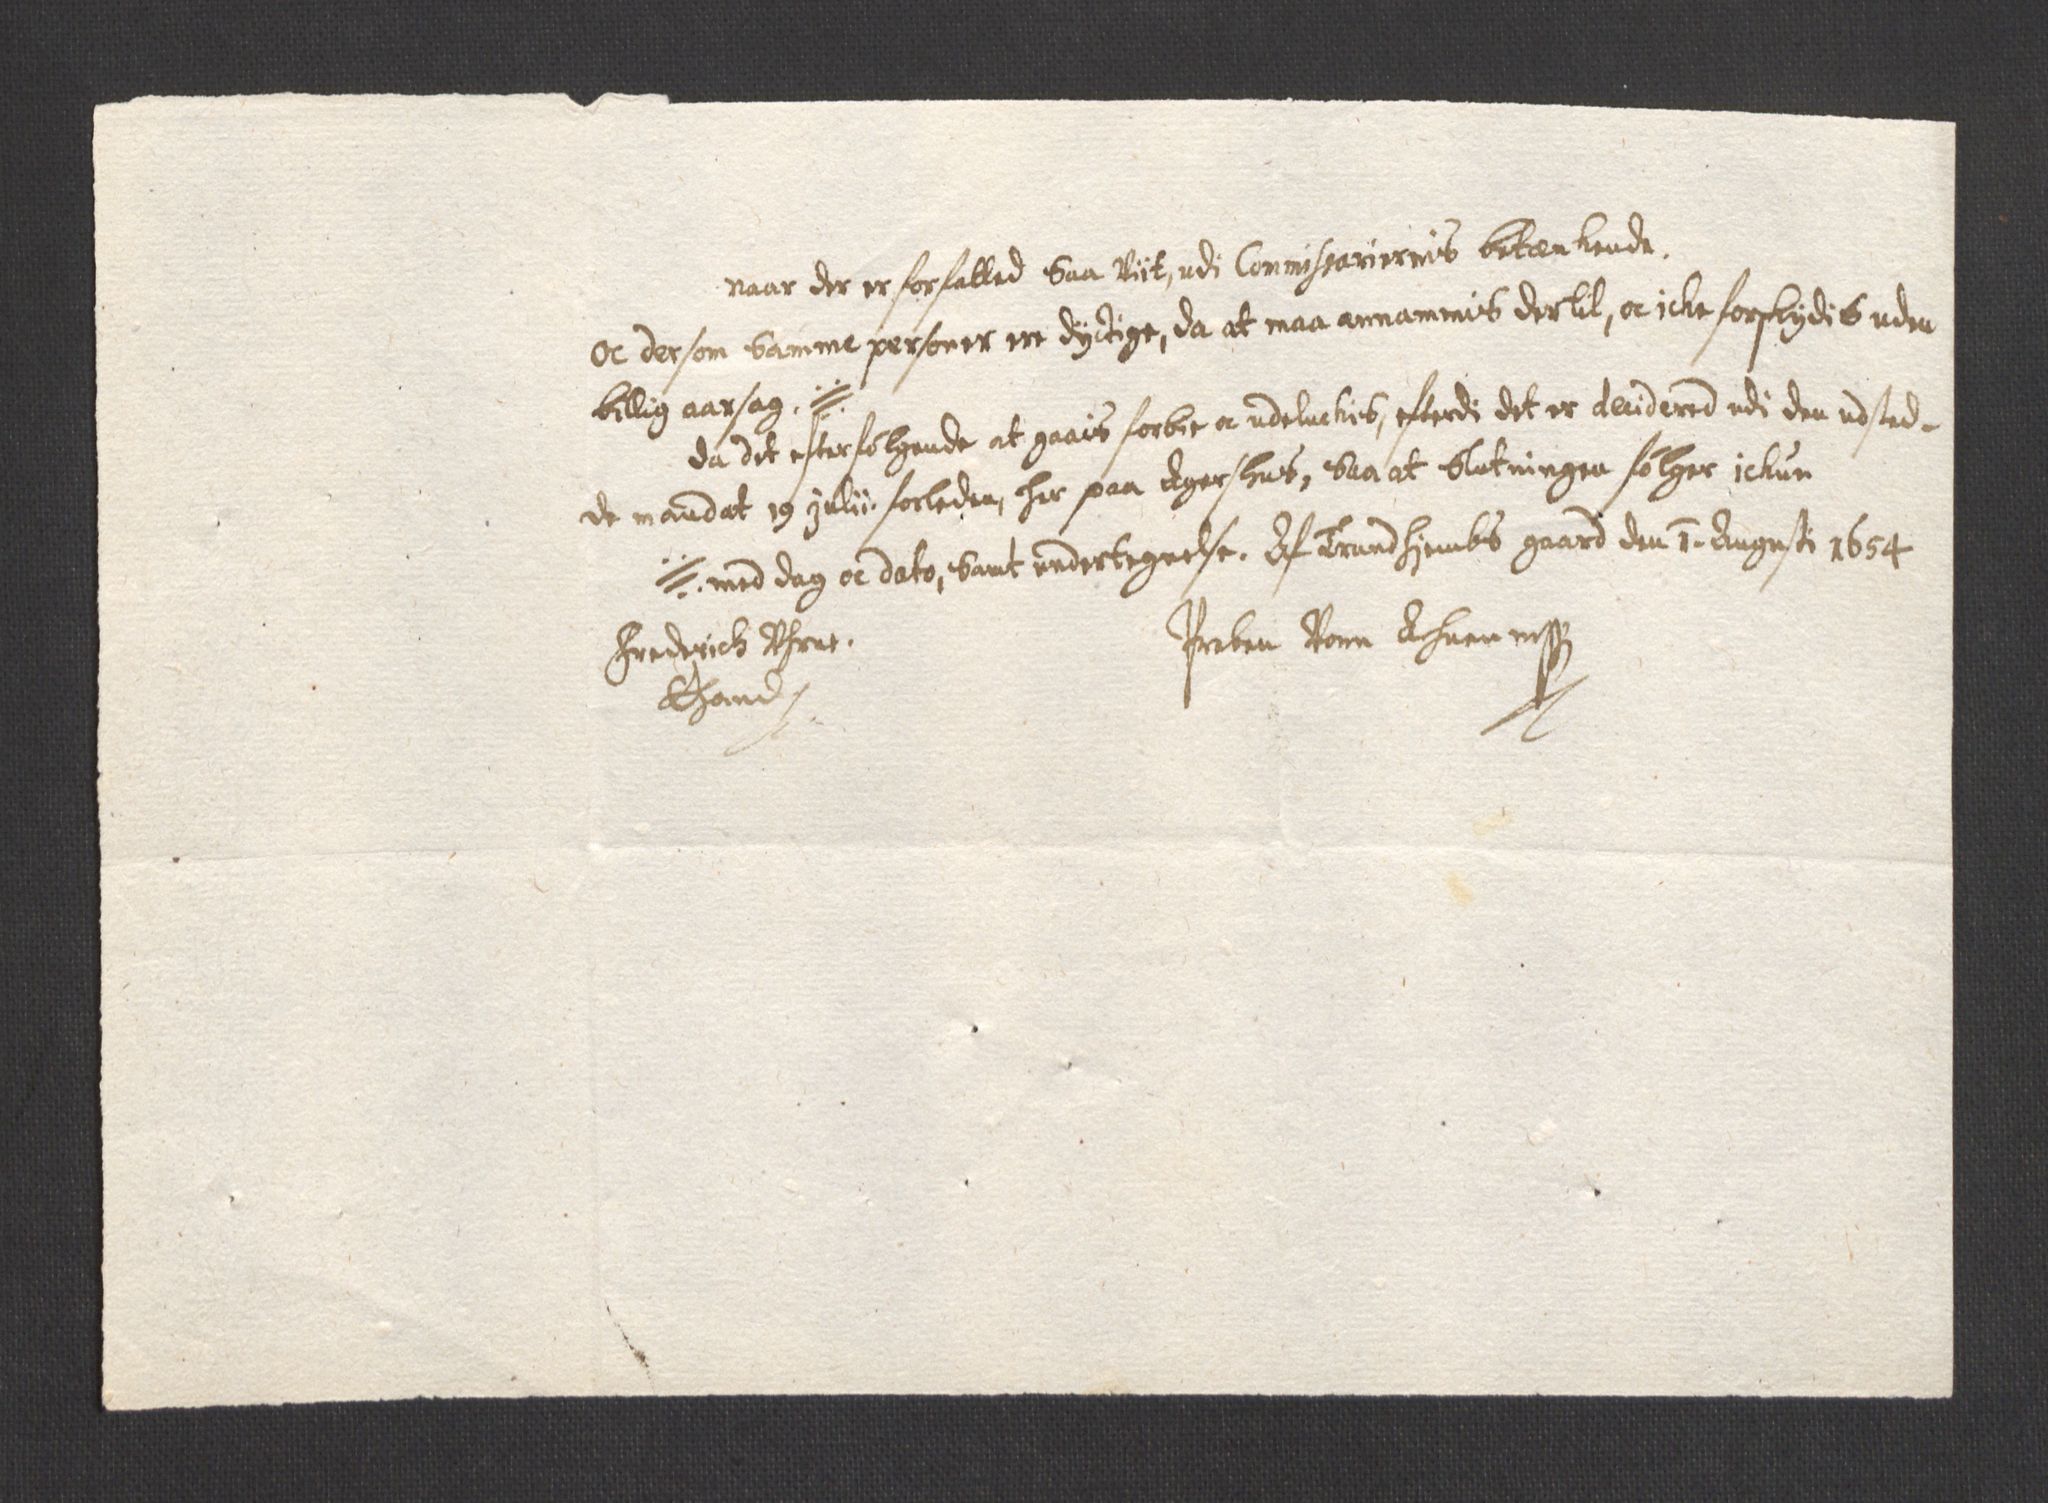 naar der er forfalled saa viit, udi Commissariernis betænkende.
Oc dersom samme personer ere dyctige, da at maa annammis dertil, oc icke forskydis uden
billig aarsag. ://:
da det efterfølgende at gaais forbie oc udeluckis, efterdi det er decidered udi den udsted-
de mandat 19 Julii forleden, her paa Agershus, saa at slutningen følger ickun
://: med dag oc dato, samt undertegnelse. Af Trundhjembs gaard den 1. Augusti 1654
Frederich
Preben Vonn Ahnen
Ehand